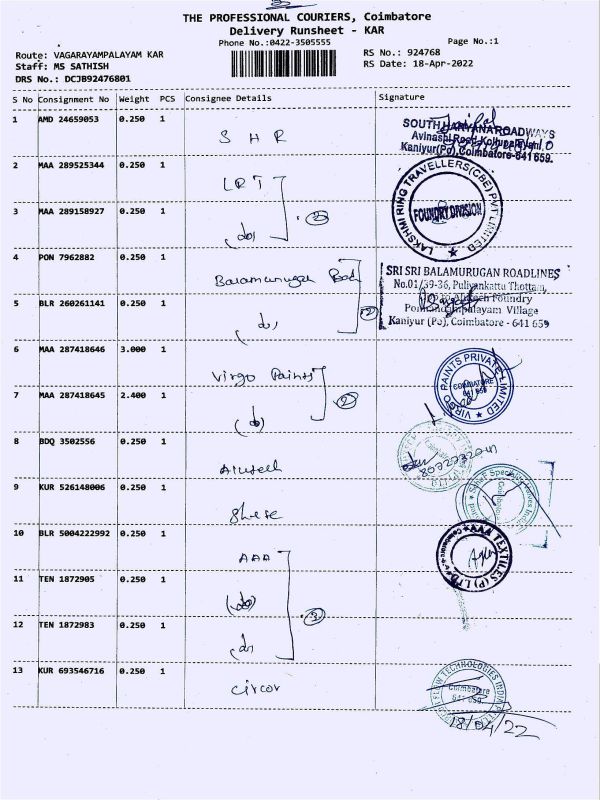 THE PROFESSIONAL COURIERS, Coimbatore
Delivery Runsheet - KAR
Phone No.:0422-3505555
Page No.:1
Route: VAGARAYAMPALAYAM KAR
Staff: MS SATHISH
DRS No.: DCJB92476801
RS No.: 924768
RS Date: 18-Apr-2022
S No Consignment No Weight PCS Consignee Details Signature
1 AMD 24659053 0.250 1
S H R
SOUTH HARYANA ROADWAYS
Avinashi Road, Kollupalayam,
Kaniyur(Po), Coimbatore-641 659.
2 MAA 289525344 0.250 1
L R T
LAKSHMI RING TRAVELLERS(CBE) PVT LIMITED
FOUNDRY DIVISION
3 MAA 289158927 0.250 1
(do)
4 PON 7962882 0.250 1
Balamurugan
SRI SRI BALAMURUGAN ROADLINES
No.01/59-36, Puliyankattu Thottam,
Foundry
Village
Kaniyur (Po), Coimbatore - 641 659
5 BLR 260261141 0.250 1
(do)
2
6 MAA 287418646 3.000 1
Virgo Paints
VIRGO PAINTS PRIVATE LIMITED
COIMBATORE
641 659
7 MAA 287418645 2.400 1
(do)
2
8 BDQ 3502556 0.250 1
9 KUR 526148006 0.250 1
10 BLR 5004222992 0.250 1
AAA
AAA TEXTILES (P) LTD.
11 TEN 1872905 0.250 1
(do)
12 TEN 1872983 0.250 1
(do)
13 KUR 693546716 0.250 1
Circor
FLOW TECHNOLOGIES INDIA
Coimbatore
641 659.
18/04/22